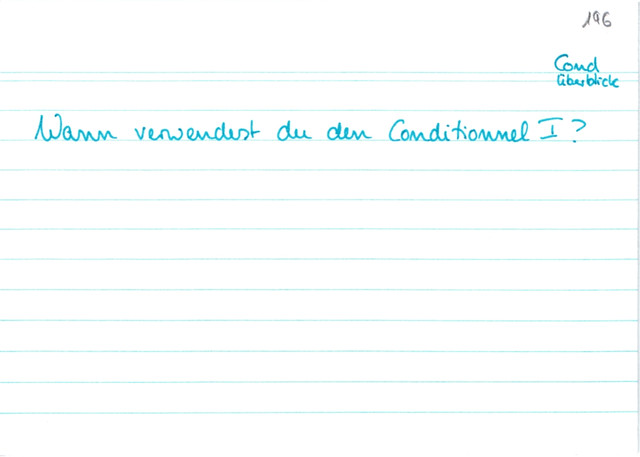 196
Cond
Überblick
Wann verwendest du den Conditionnel I?